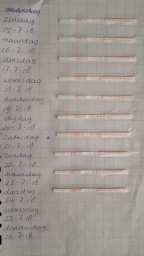 zondag
15-7-18
maandag
16-7-18
dinsdag
17-7-18
woensdag
18-7-18
donderdag
19-7-18
vrijdag
20-7-18
zaterdag
21-7-18
zondag
22-7-18
maandag
23-7-18
dinsdag
24-7-18
woensdag
25-7-18
donderdag
26-7-18